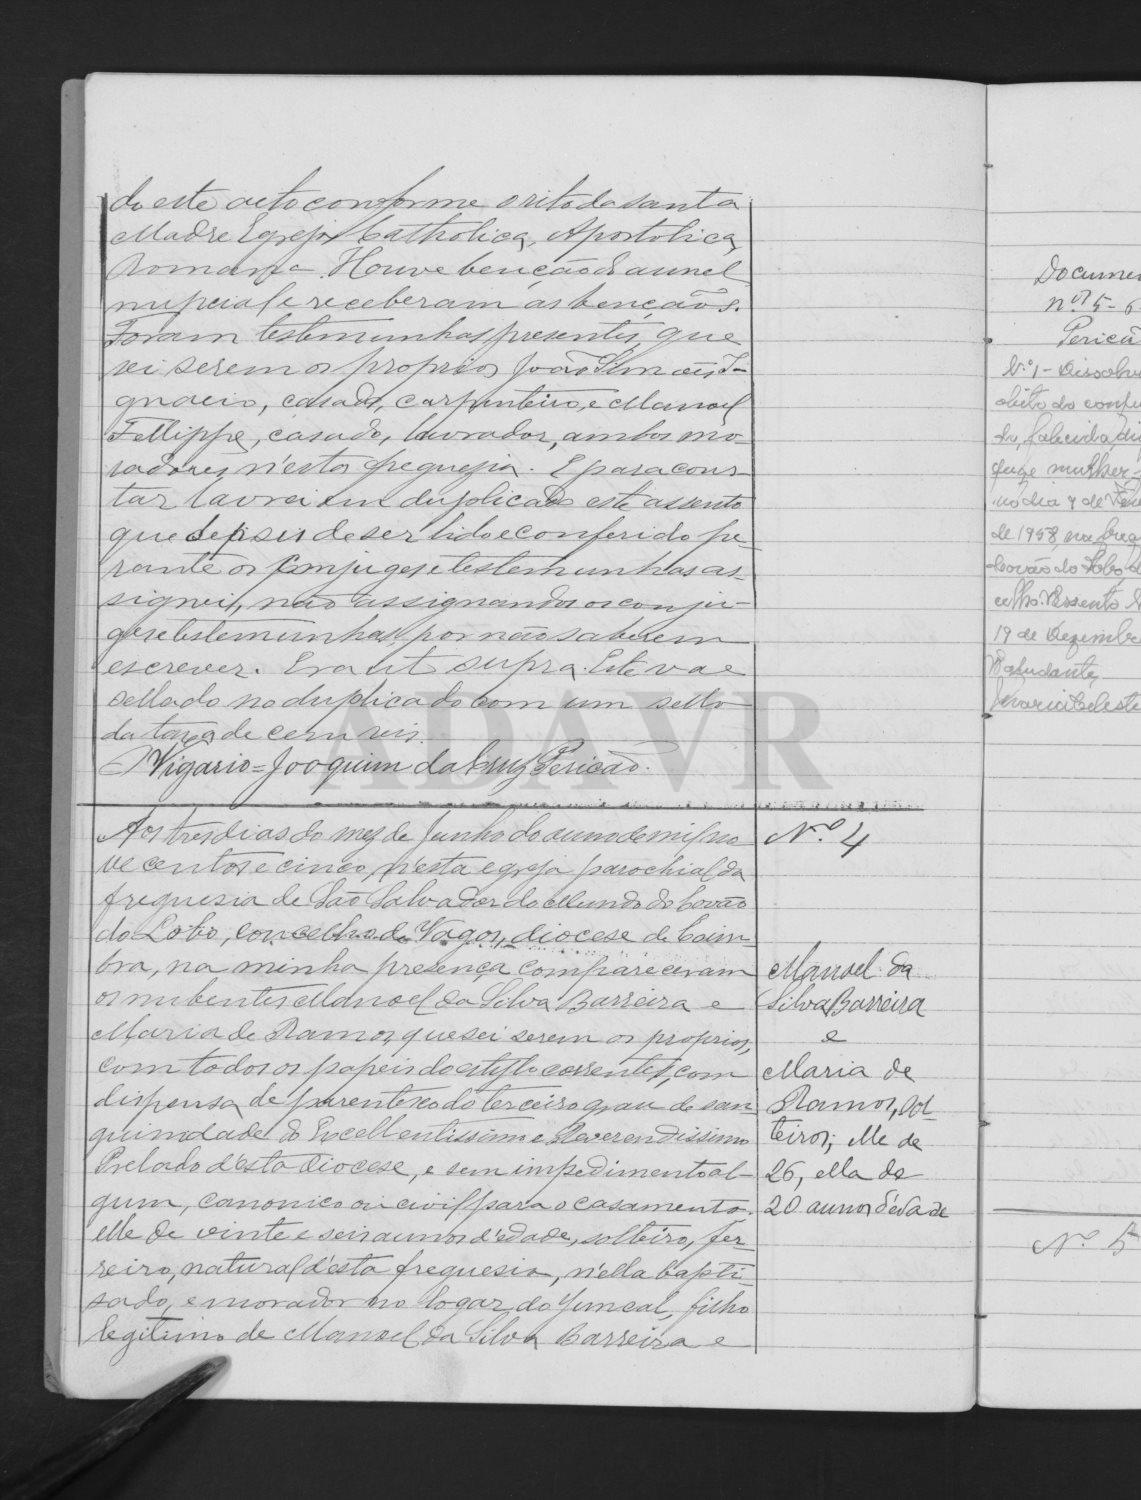 do este acto conforme o rito da santa
Madre Egreja Catholica, Apostolica,
Romana. Houve benção do annel
nupcial e receberam as bençaõs.
Foram testemunhas presentes, que
sei serem os proprios João Simões I-
gnacio, casado, carpinteiro, e Manoel
Fellippe, casado, lavrador, ambos mo-
radores n'esta freguesia. E para cons-
tar lavrei em duplicado este assento
que depois de ser lido e conferido pe-
rante os conjuges e testemunhas as-
signei, não assignando os conju-
ges e testemunhas, por não saberem
escrever. Era ut supra. Este vae
sellado no duplicado com um sello
da taxa de cem reis.
O Vigario = Joaquim da Cruz Pericaõ.
Aos tres dias do mez de Junho do anno de mil no
ve centos e cinco, n'esta egreja parochial da
freguesia de Saõ Salvador do Mundo do Covão
do Lobo, concelho de Vagos, diocese de Coim-
bra, na minha presença compareceram
os nubentes Manoel da Silva Barreira e
Maria de Ramos, que sei serem os proprios,
com todos os papeis do estylo correntes, com
dispensa de parentesco do terceiro grau de san-
guinidade do Excellentissimo e Reverendissimo
Prelado d'esta diocese, e sem impedimento al-
gum, canonico ou civil para o casamento.
elle de vinte e seis annos d'edade, solteiro, fer-
reiro, natural d'esta freguesia, n'ella bapti-
sado, e morador no logar do Juncal, filho
legitimo de Manoel da Silva Barreira e
Nº 4
Manoel da
Silva Barreira
e
Maria de
Ramos, sol-
teiros; elle de
26, ella de
20 annos d'edade
Documen
nºs 5-6
Pericaõ
N.º 1 - Dissolvi
obito do conju
de 1958
19 de Dezembr
O Ajudante,
Maria Celeste
Nº 5
ADAVR